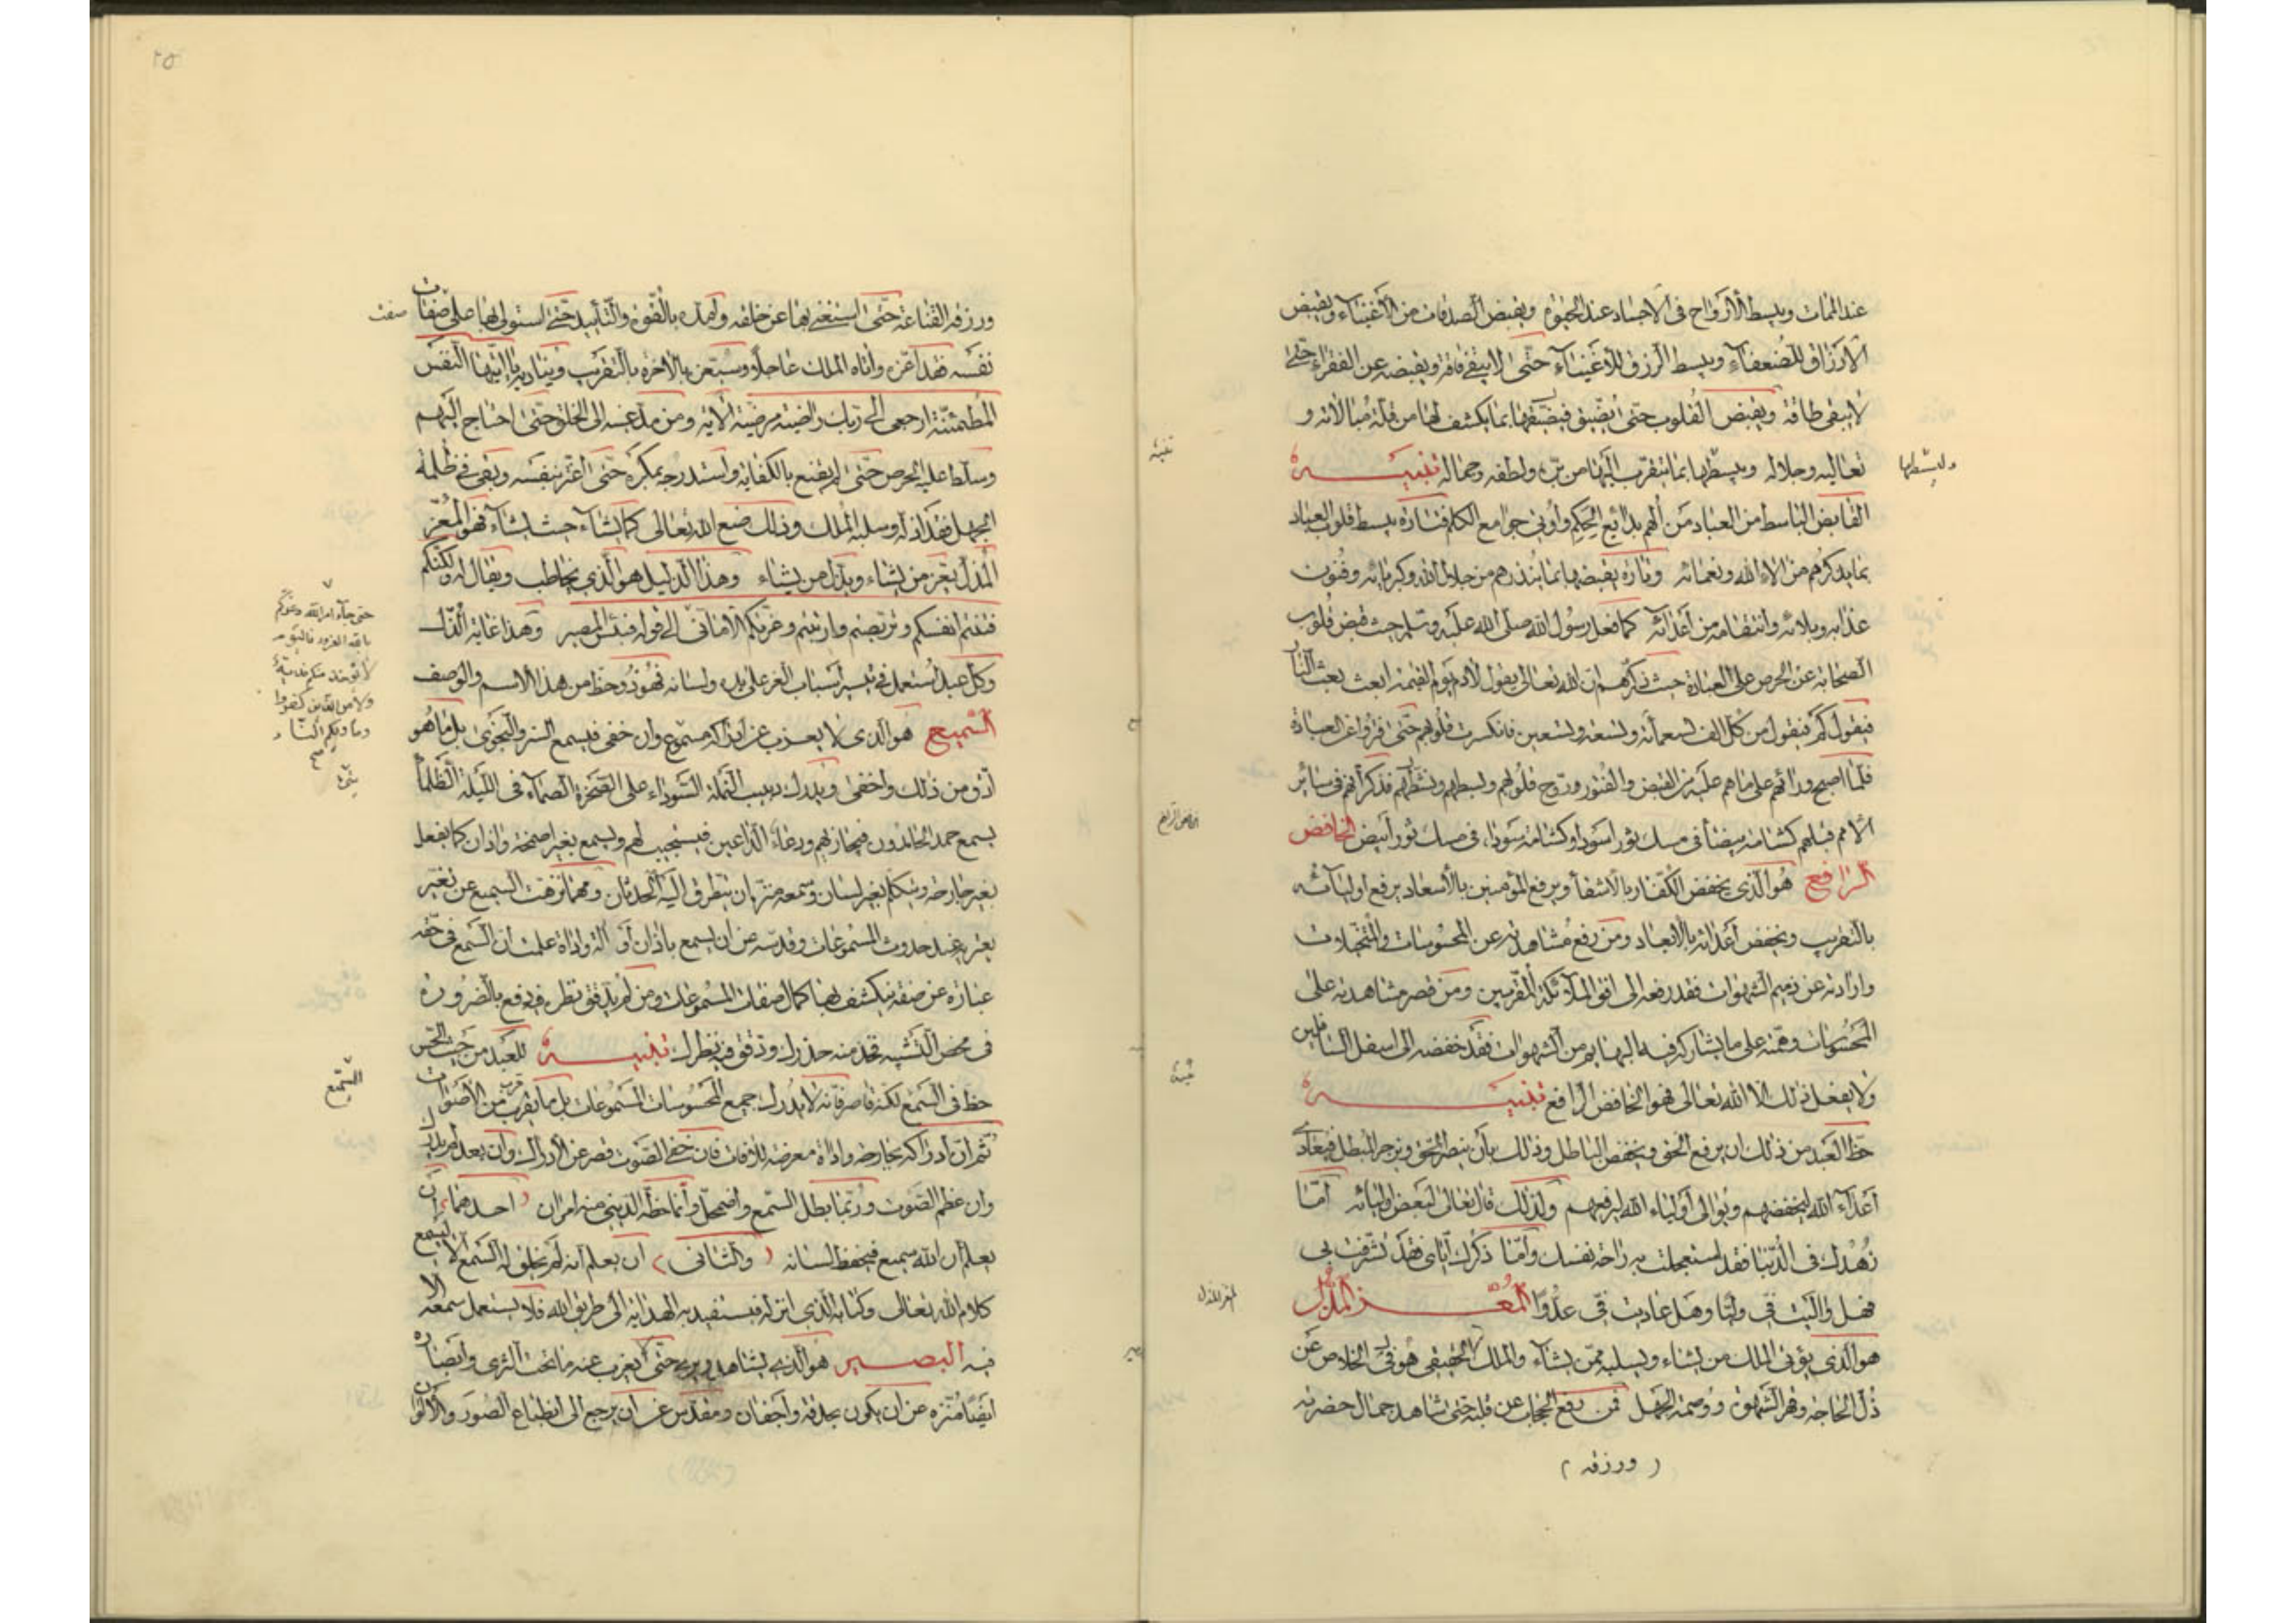 عند الممات ويبسط الأرواح في الاجساد عند الحيوة ويقبض الصدقات من الأغنياء ويقبض
الأرزاق للضعفاء ويبسط الرزق للأغنياء حتى لا يبقى فاقة ويقبضه عن الفقراء حتى
لا يبقى طاقة ويقبض القلوب حتى يضيق فيضيقها بما يكشف لها من قلة مبالاته و
تعاليه وجلاله ويبسطها بما يتقرب اليها من بره ولطفه وجماله تنبيه
القابض الباسط من العباد من ألهم بدائع الحكم وأوتي جوامع الكلم فتارة يبسط قلوب العباد
بما يذكرهم من الاء الله ونعمائه وتارة يقبضها بما ينذرهم من جلال الله وكبريائه وفنون
عذابه وبلائه وانتقامه من أعدائه كما فعل رسول الله صلى الله عليه وسلم حيث قبض قلوب
الصحابة عن الحرص على العبادة حيث ذكرهم ان الله تعالى يقول لادم يوم القيمة ابعث بعث النار
فيقول كم فيقول من كل الف تسعمائة وتسعة وتسعين فانكسرت قلوبهم حتى فتروا عن العبادة
فلما اصبح وراهم على ما هم عليه من القبض والفتور وروح قلوبهم وبسطهم ونشطهم فذكر أنهم في سائر
الامم قبلهم كشامة بيضأ في مسك ثور اسود او كشامة سوداء في مسك ثور أبيض الخافض
الرافع هو الذي يخفض الكفار بالاشقأ ويرفع المؤمنين بالأسعاد يرفع اوليائه
بالتقريب ويخفض أعدائه بالابعاد ومن رفع مشاهدته عن المحسوسات والمتخيلات
وارادته عن ذميم الشهوات فقد رفعه الى افق الملائكة المقربين ومن قصر مشاهدته على
المحسوسات وهمته على ما يشاركه فيه البهايم من الشهوات فقد خفضه الى اسفل السافلين
ولا يفعل ذلك الا الله تعالى فهو الخافض الرافع تنبيه
حظ العبد من ذلك ان يرفع الحق ويخفض الباطل وذلك بأن ينصر المحق ويزجر المبطل فيعادي
أعداء الله ليخفضهم ويوالي أولياء الله ليرفعهم ولذلك قال تعالى لبعض اوليائه أما
زهدك في الدنيا فقد استعجلت به راحة نفسك وأما ذكرك اياي فقد تشرفت بي
فهل واليت في وليا وهل عاديت في عدوا المعز المذل
هو الذي يؤتي الملك من يشاء ويسلبه ممن يشاء والملك الحقيقي هو في الخلاص عن
ذل الحاجة وقهر الشهوة ووصمة الجهل فمن رفع الحجاب عن قلبه حتى شاهد جمال حضرته
( ورزقه )
ولبسطها
تنبيه
الخافض الرافع
تنبيه
المعز المذل
٢٥
ورزقه القناعة حتى استغنى بها عن خلقه وامده بالقوة والتأييد حتى استولى بها على صفات
نفسه فقد اعزه واتاه الملك عاجلا وسيعزه بالاخرة بالتقريب ويناديه يا ايتها النفس
المطمئنة ارجعي الى ربك راضية مرضية الاية ومن مد عينه الى الخلق حتى احتاج اليهم
وسلط عليه الحرص حتى لم يقنع بالكفاية واستدرجه بمكره حتى اغتر بنفسه وبقى في ظلمة
الجهل فقد اذله وسلبه الملك وذلك صنع الله تعالى كما يشاء حيث يشاء فهو المعز
المذل يعز من يشاء ويذل من يشاء وهذا الذليل هو الذي يخاطب ويقال له ولكنكم
فتنتم انفسكم وتربصتم وارتبتم وغرتكم الاماني الى قوله فبئس المصير وهذا غاية الذل
وكل عبد استعمل في تيسير أسباب العز على يده ولسانه فهو ذو حظ من هذا الاسم والوصف
السميع هو الذي لا يعزب عن ادراكه مسموع وان خفي فيسمع السر والنجوى بل ما هو
أدق من ذلك واخفى ويدرك دبيب النملة السوداء على الصخرة الصماء في الليلة الظلماء
يسمع حمد الحامدون فيجازيهم ودعاء الداعين فيستجيب لهم ويسمع بغير اصمخة واذان كما يفعل
بغير جارحة ويتكلم بغير لسان وسمعه منزه ان يتطرق اليه الحدثان ومهما نزهت السميع عن تغير
يعتريه عند حدوث المسموعات وقدسته عن ان يسمع باذان أو الة واداة علمت ان السمع في حقه
عبارة عن صفة ينكشف بها كمال صفات المسموعات ومن لم يدقق نظره فيه وقع بالضرورة
في محض التشبيه فخذ منه حذرك ودقق فيه نظرك تنبيه للعبد من حيث الحس
حظ في السمع لكنه قاصر فانه لا يدرك جميع المحسوسات المسموعات بل ما يقرب من الأصوات
ثم ان ادراكه بجارحة واداة معرضة للافات فان خفي الصوت قصر عن الادراك وان بعد لم يدرك
وان عظم الصوت وربما بطل السمع واضمحل وأنما حظه الديني منه امران احدهما ان
يعلم أن الله سميع فيحفظ لسانه ( والثاني ) ان يعلم انه لم يخلق له السمع الا ليسمع
كلام الله تعالى وكتابه الذي انزله فيستفيد به الهداية الى طريق الله فلا يستعمل سمعه الا
فيه البصير هو الذي يشاهد ويرى حتى لا يعزب عنه ما تحت الثرى وابصاره
ايضا منزه عن ان يكون بحدقة وأجفان ومقدس عن ان يرجع الى انطباع الصور والألوان
صفت
حتى جاء امر الله وغركم
بالله الغرور فاليوم
لا يؤخذ منكم فدية
ولا من الذين كفروا
وماويكم النار
صح
السمع